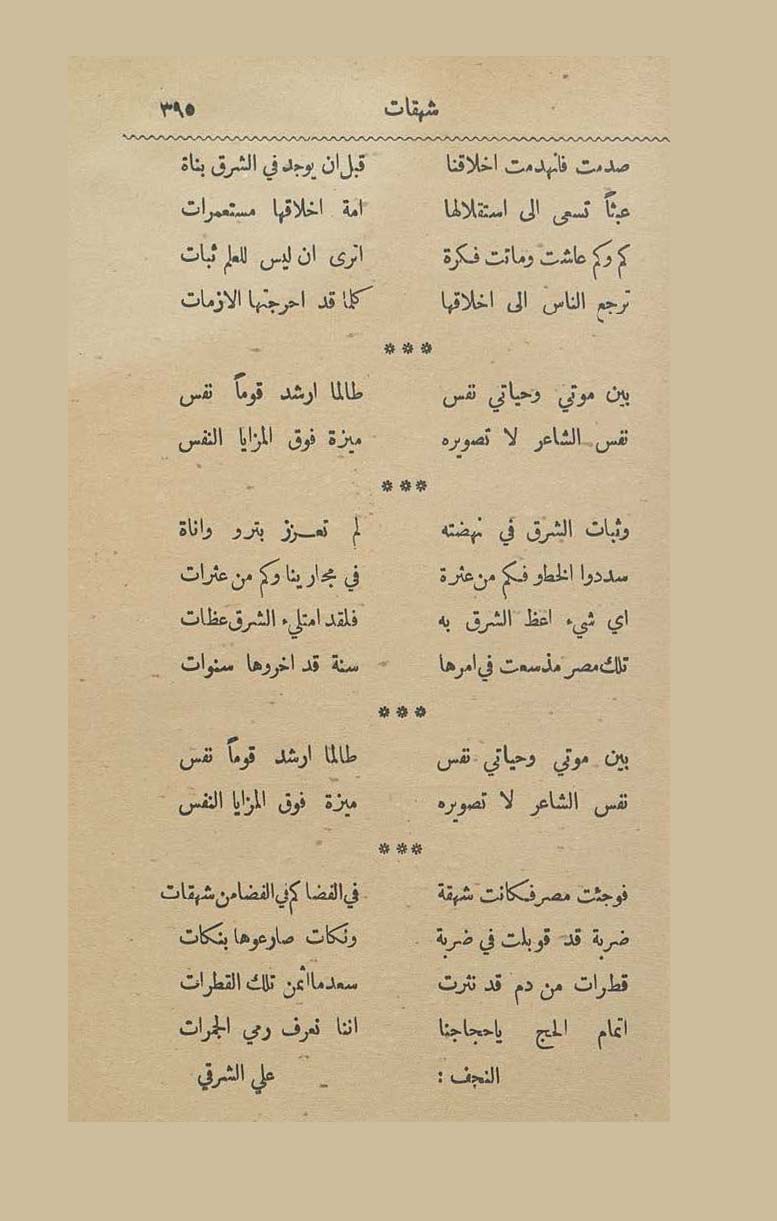 شهقات ٣٩٥
صدمت فانهدمت اخلاقنا قبل ان يوجد في الشرق بناة
عبثاً تسعى الى استقلالها امة اخلاقها مستعمرات
كم وكم عاشت وماتت فكرة اترى ان ليس للعلم ثبات
ترجع الناس الى اخلاقها كلما قد احرجتها الازمات
* * *
بين موتي وحياتي نفس طالما ارشد قوماً نفس
نفس الشاعر لا تصويره ميزة فوق المزايا النفس
* * *
وثبات الشرق في نهضته لم تعزز بترو واناة
سددوا الخطو فكم من عثرة في مجارينا وكم من عثرات
اي شيء اعظ الشرق به فلقد امتليء الشرق عظات
تلك مصر مذ سعت في امرها سنة قد اخروها سنوات
* * *
بين موتي وحياتي نفس طالما ارشد قوماً نفس
نفس الشاعر لا تصويره ميزة فوق المزايا النفس
* * *
فوجئت مصر فكانت شهقة في الفضا كم في الفضا من شهقات
ضربة قد قوبلت في ضربة ونكات صارعوها بنكات
قطرات من دم قد نثرت سعد ما اثمن تلك القطرات
اتمام الحج ياحجاجنا اننا نعرف رمي الجمرات
النجف : علي الشرقي